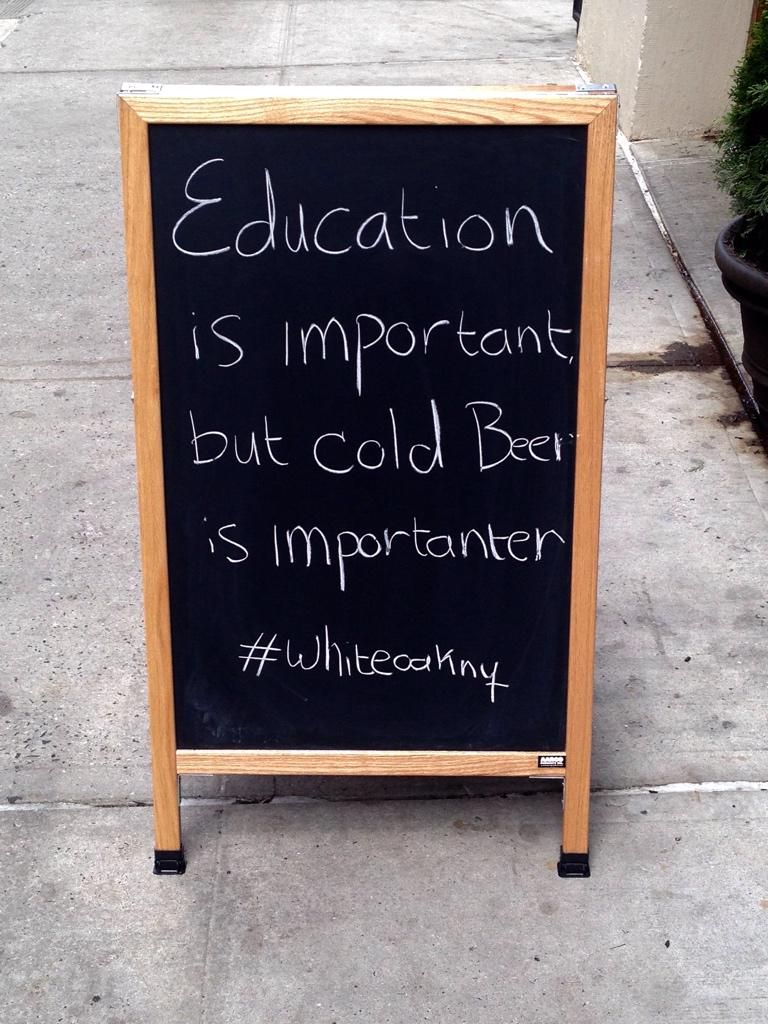 Education
is important,
but cold Beer
is importanter
#whiteoakny
AARCO